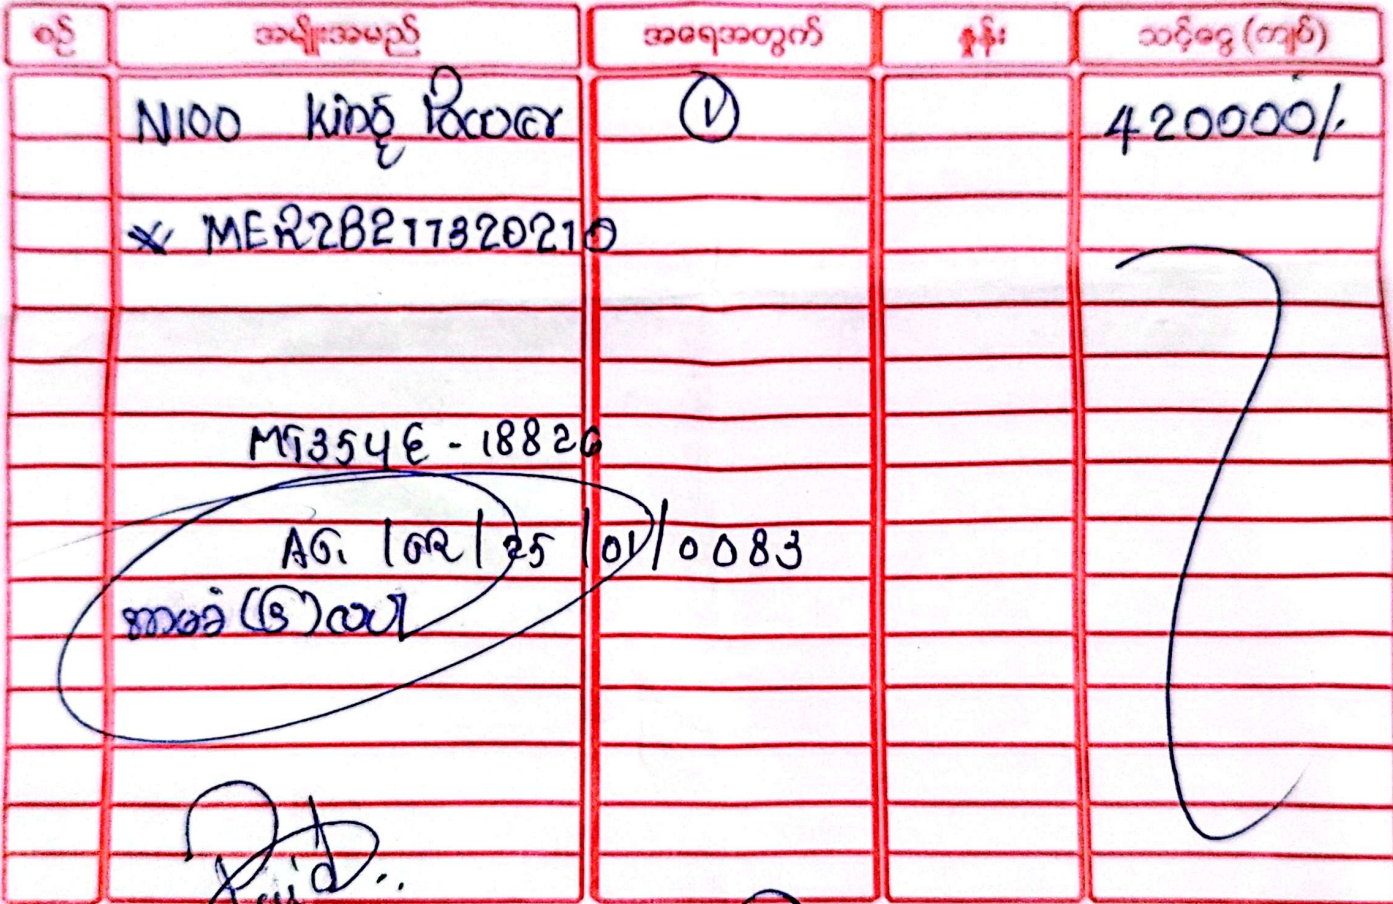 စဉ် အမျိုးအမည် အရေအတွက် နှုန်း သင့်ငွေ (ကျပ်)
N100 ① 420000/-
* MER2B21T320210
MT354E - 18826
AG / GR / 25 / 01 / 0083
အာမခံ (၆) လပါ
Paid